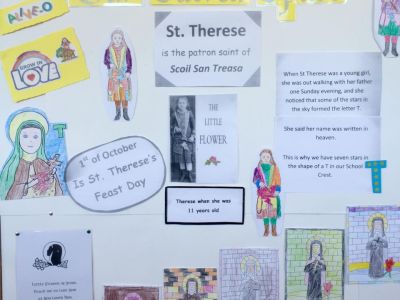 ALIVE-O
GROW IN
LOVE
St. Therese
is the patron saint of
Scoil San Treasa
When St Therese was a young girl,
she was out walking with her father
one Sunday evening, and she
noticed that some of the stars in
the sky formed the letter T.
She said her name was written in
heaven.
This is why we have seven stars in
the shape of a T in our School
Crest.
THE
LITTLE
FLOWER
Therese when she was
11 years old
T
1st of October
Is St. Therese's
Feast Day
T
Little Flower